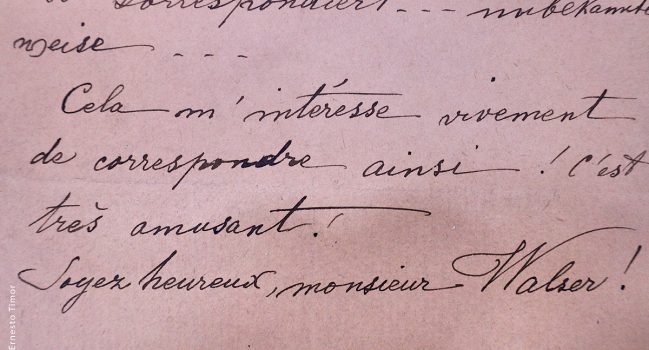 correspondiert - - - unbekannte
weise - - -
Cela m'intéresse vivement
de correspondre ainsi ! C'est
très amusant !
Soyez heureux, monsieur Walser !
Ernesto Timor